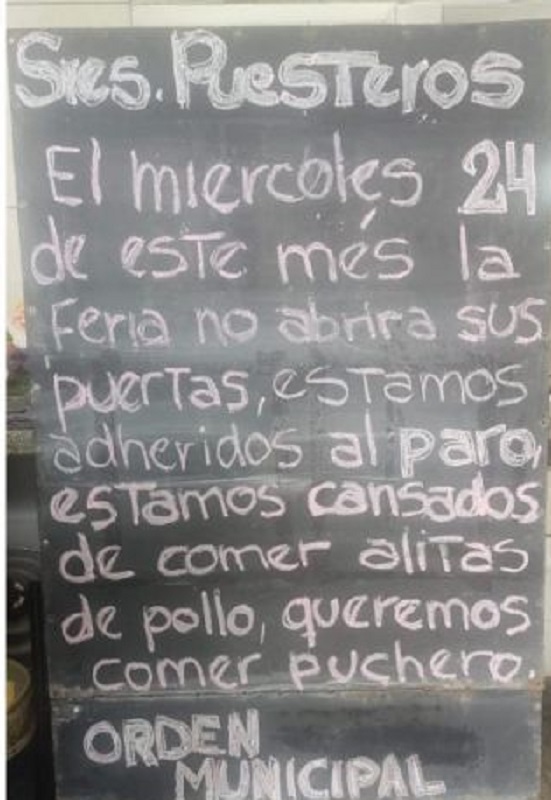 Sres. Puesteros
El miercoles 24
de este més la
Feria no abrira sus
puertas, estamos
adheridos al paro,
estamos cansados
de comer alitas
de pollo, queremos
comer puchero.
ORDEN
MUNICIPAL